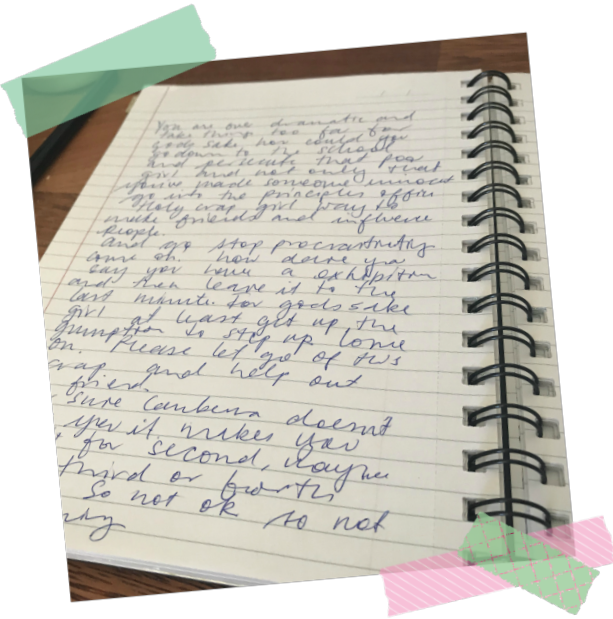 You are one dramatic and
take things too far for
gods sake how could you
go down to the school
and persecute that poor
girl and not only that
you've made someone innocent
go into the principles office
Holy crap girl way to
make friends and influence
people.
And go stop procrastinating
come on. how dare you
say you have a exhibition
and then leave it to the
last minute for gods sake
girl at least get up the
gumption to step up come
on. Please let go of this
crap and help out
friend
sure Canberra doesn't
makes you
for second, maybe
third or fourth
So not ok so not